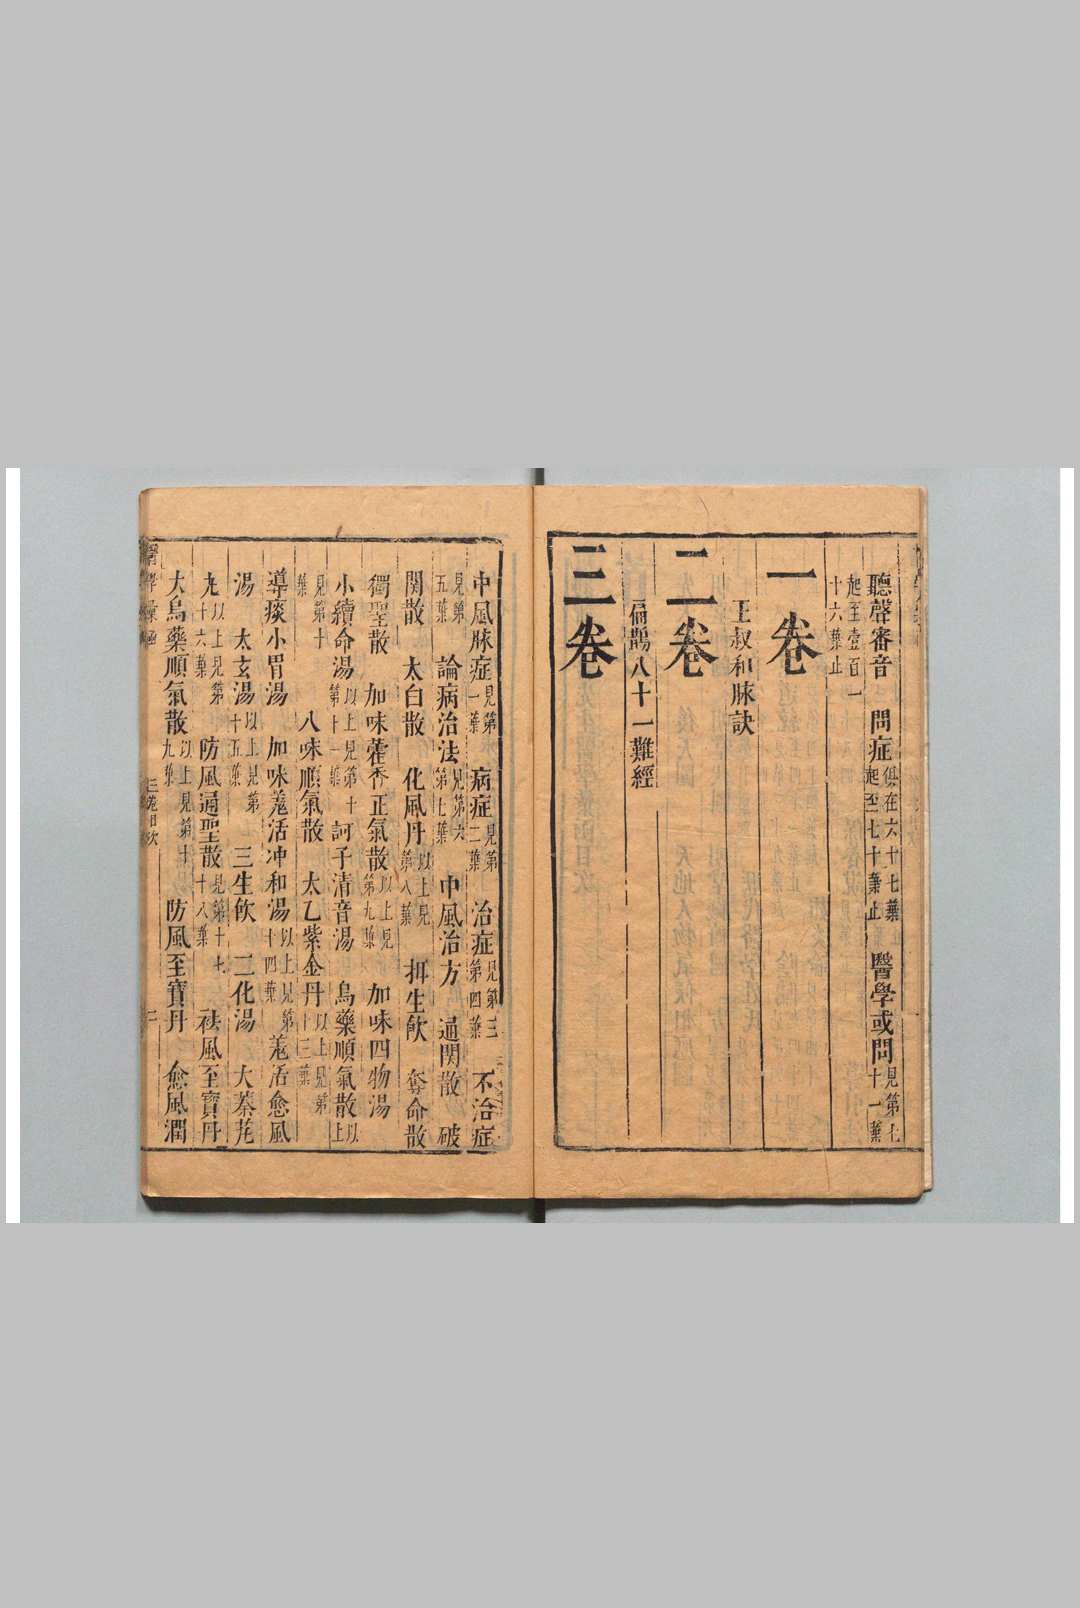 聽聲審音 問症俱在六十七葉起至七十葉止 醫學或問見第七十一葉
起至壹百一十六葉止
一卷
王叔和脉訣
二卷
扁鵲八十一難經
三卷
中風脉症見第一葉 病症見第二葉 治症見第三第四葉 不治症
見第五葉 論病治法見第六第七葉 中風治方 通関散 破
関散 太白散 化風丹以上見第八葉 挕生飲 奪命散
獨聖散 加味藿香正氣散以上見第九葉 加味四物湯
小續命湯以上見第十第十一葉 訶子清音湯 烏藥順氣散以上
見第十葉 八味順氣散 太乙紫金丹以上見第十三葉
導痰小胃湯 加味羗活冲和湯以上見第十四葉 羗活愈風
湯 太玄湯以上見第十五葉 三生飲 三化湯 大秦艽
九以上見第十六葉 防風通聖散見第十七十八葉 祛風至寶丹
大烏藥順氣散以上見第十九葉 防風至寶丹 愈風潤
三卷目次 二